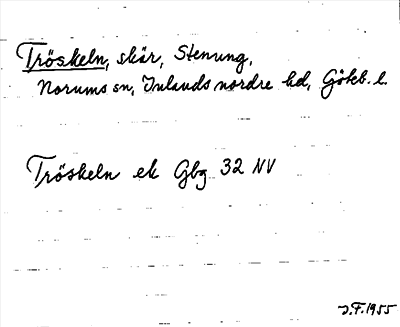 Tröskeln, skär, Stenung,
Norums sn, Inlands nordre hd, Göteb. l.
Tröskeln ek Gbg 32 NV
J.F. 1955